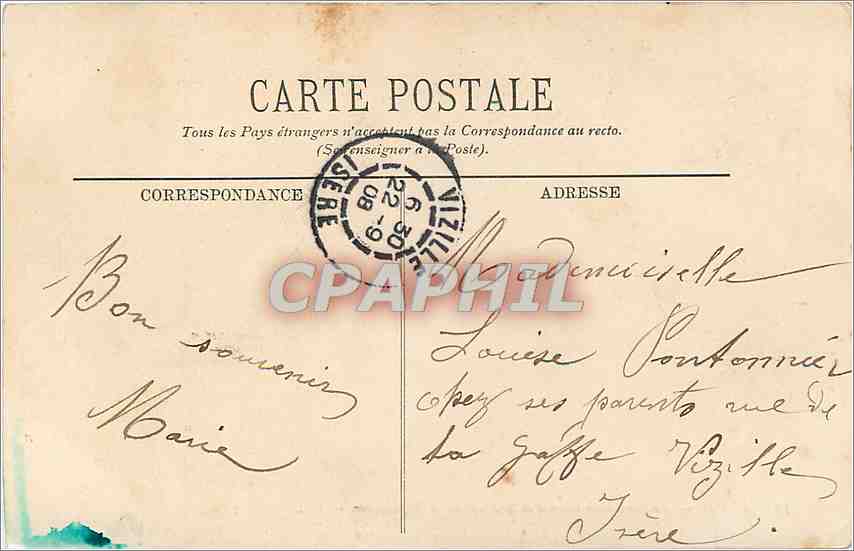 CARTE POSTALE
Tous les Pays étrangers n'acceptent pas la Correspondance au recto.
(Se renseigner à la Poste).
CORRESPONDANCE
ADRESSE
VIZILLE
ISERE
6 30
22 -9
08
CPAPHIL
Bon
souvenir
Marie
Mademoiselle
Louise Pontonnier
chez ses parents rue de
la Gaffe Vizille
Isère.